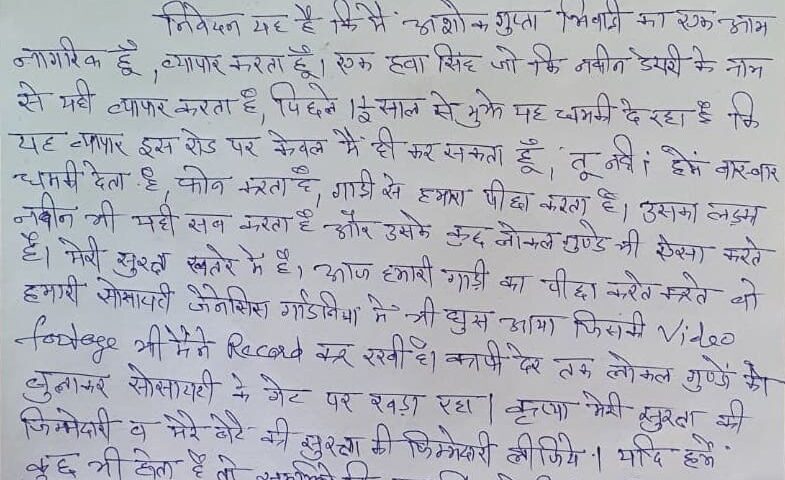 निवेदन यह है कि मैं अशोक गुप्ता भिवाडी का एक आम
नागरिक हूँ, व्यापार करता हूँ। एक हवा सिंह जो कि नवीन डेयरी के नाम
से यही व्यापार करता है, पिछले 1½ साल से मुझे यह धमकी दे रहा है कि
यह व्यापार इस रोड पर केवल मैं ही कर सकता हूँ, तू नहीं। हमें बार-बार
धमकी देता है, फोन करता है, गाडी से हमारा पीछा करता है। उसका लडका
नवीन भी यही सब करता है और उसके कुछ लोकल गुण्डे भी ऐसा करते
है। मेरी सुरक्षा खतरे में है। आज हमारी गाडी का पीछा करते करते वो
हमारी सोसायटी जेनेसिस गार्डेनिया में भी घुस आया जिसकी Video
footage भी मैंने Record कर रखी है। काफी देर तक लोकल गुण्डों को
बुलाकर सोसायटी के गेट पर खडा रहा। कृप्या मेरी सुरक्षा की
जिम्मेदारी व मेरे बेटे की सुरक्षा की जिम्मेदारी लीजिये। यदि हमें
कुछ भी होता है तो